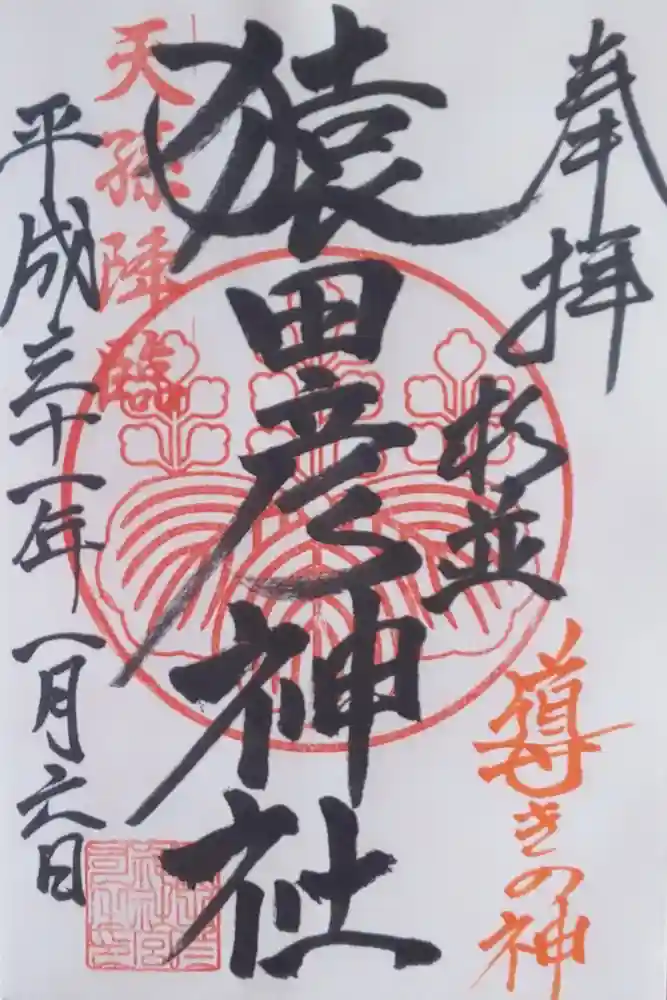 奉拝
杉並
導きの神
猿田彦神社
天孫降臨
平成三十一年一月六日